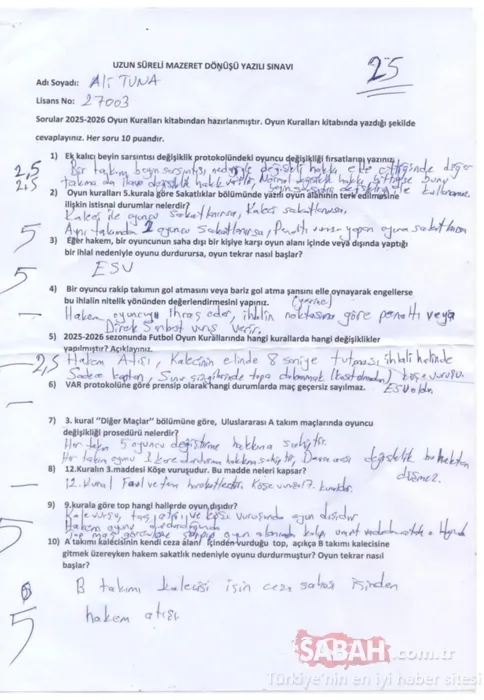 UZUN SÜRELİ MAZERET DÖNÜŞÜ YAZILI SINAVI
25
Adı Soyadı: Ali TUNA
Lisans No: 27003
Sorular 2025-2026 Oyun Kuralları kitabından hazırlanmıştır. Oyun Kuralları kitabında yazdığı şekilde
cevaplayınız. Her soru 10 puandır.
1) Ek kalıcı beyin sarsıntısı değişiklik protokolündeki oyuncu değişikliği fırsatlarını yazınız.
2,5
Bir takım beyin sarsıntısı nedeniyle değişiklik hakkı elde ettiğinde diğer
2,5
takıma da ilave değişiklik hakkı verilir. Normal değişiklik hakkı
2) Oyun kuralları 5.kurala göre Sakatlıklar bölümünde yazılı oyun alanının terk edilmesine
ilişkin istisnai durumlar nelerdir?
Kaleci ile oyuncu sakatlanırsa, Kaleci sakatlanırsa.
5
Aynı takımdan 2 oyuncu sakatlanırsa, Penaltı vuruşu yapan oyuncu sakatlanırsa
3) Eğer hakem, bir oyuncunun saha dışı bir kişiye karşı oyun alanı içinde veya dışında yaptığı
bir ihlal nedeniyle oyunu durdurursa, oyun tekrar nasıl başlar?
ESV
5
4) Bir oyuncu rakip takımın gol atmasını veya bariz gol atma şansını elle oynayarak engellerse
bu ihlalin nitelik yönünden değerlendirmesini yapınız.
Hakem oyuncuyu ihraç eder, ihlalin noktasına göre penaltı veya
Direk Serbest vuruş verir.
5) 2025-2026 sezonunda Futbol Oyun Kurallarında hangi kurallarda hangi değişiklikler
yapılmıştır? Açıklayınız.
2,5
Hakem Atışı, Kalecinin elinde 8 saniye tutması ihlali halinde
köşe vuruşu.
Sadece kaptan,
6) VAR protokolüne göre prensip olarak hangi durumlarda maç geçersiz sayılmaz.
7) 3. kural "Diğer Maçlar" bölümüne göre, Uluslararası A takım maçlarında oyuncu
değişikliği prosedürü nelerdir?
Her takım 5 oyuncu değiştirme hakkına sahiptir.
Her takım oyunu 3 kere durdurma hakkına sahiptir, Devre arası değişiklik bu haktan
düşmez.
8) 12.Kuralın 3.maddesi Köşe vuruşudur. Bu madde neleri kapsar?
12. kural Faul ve fena hareketlerdir. Köşe vuruşu 17. kuraldır.
9) 9.kurala göre top hangi hallerde oyun dışıdır?
5
10) A takımı kalecisinin kendi ceza alanı içinden vurduğu top, açıkça B takımı kalecisine
gitmek üzereyken hakem sakatlık nedeniyle oyunu durdurmuştur? Oyun tekrar nasıl
başlar?
B takımı kalecisi için ceza sahası içinden
5
hakem atışı
SABAH.com.tr
Türkiye'nin en iyi haber sitesi